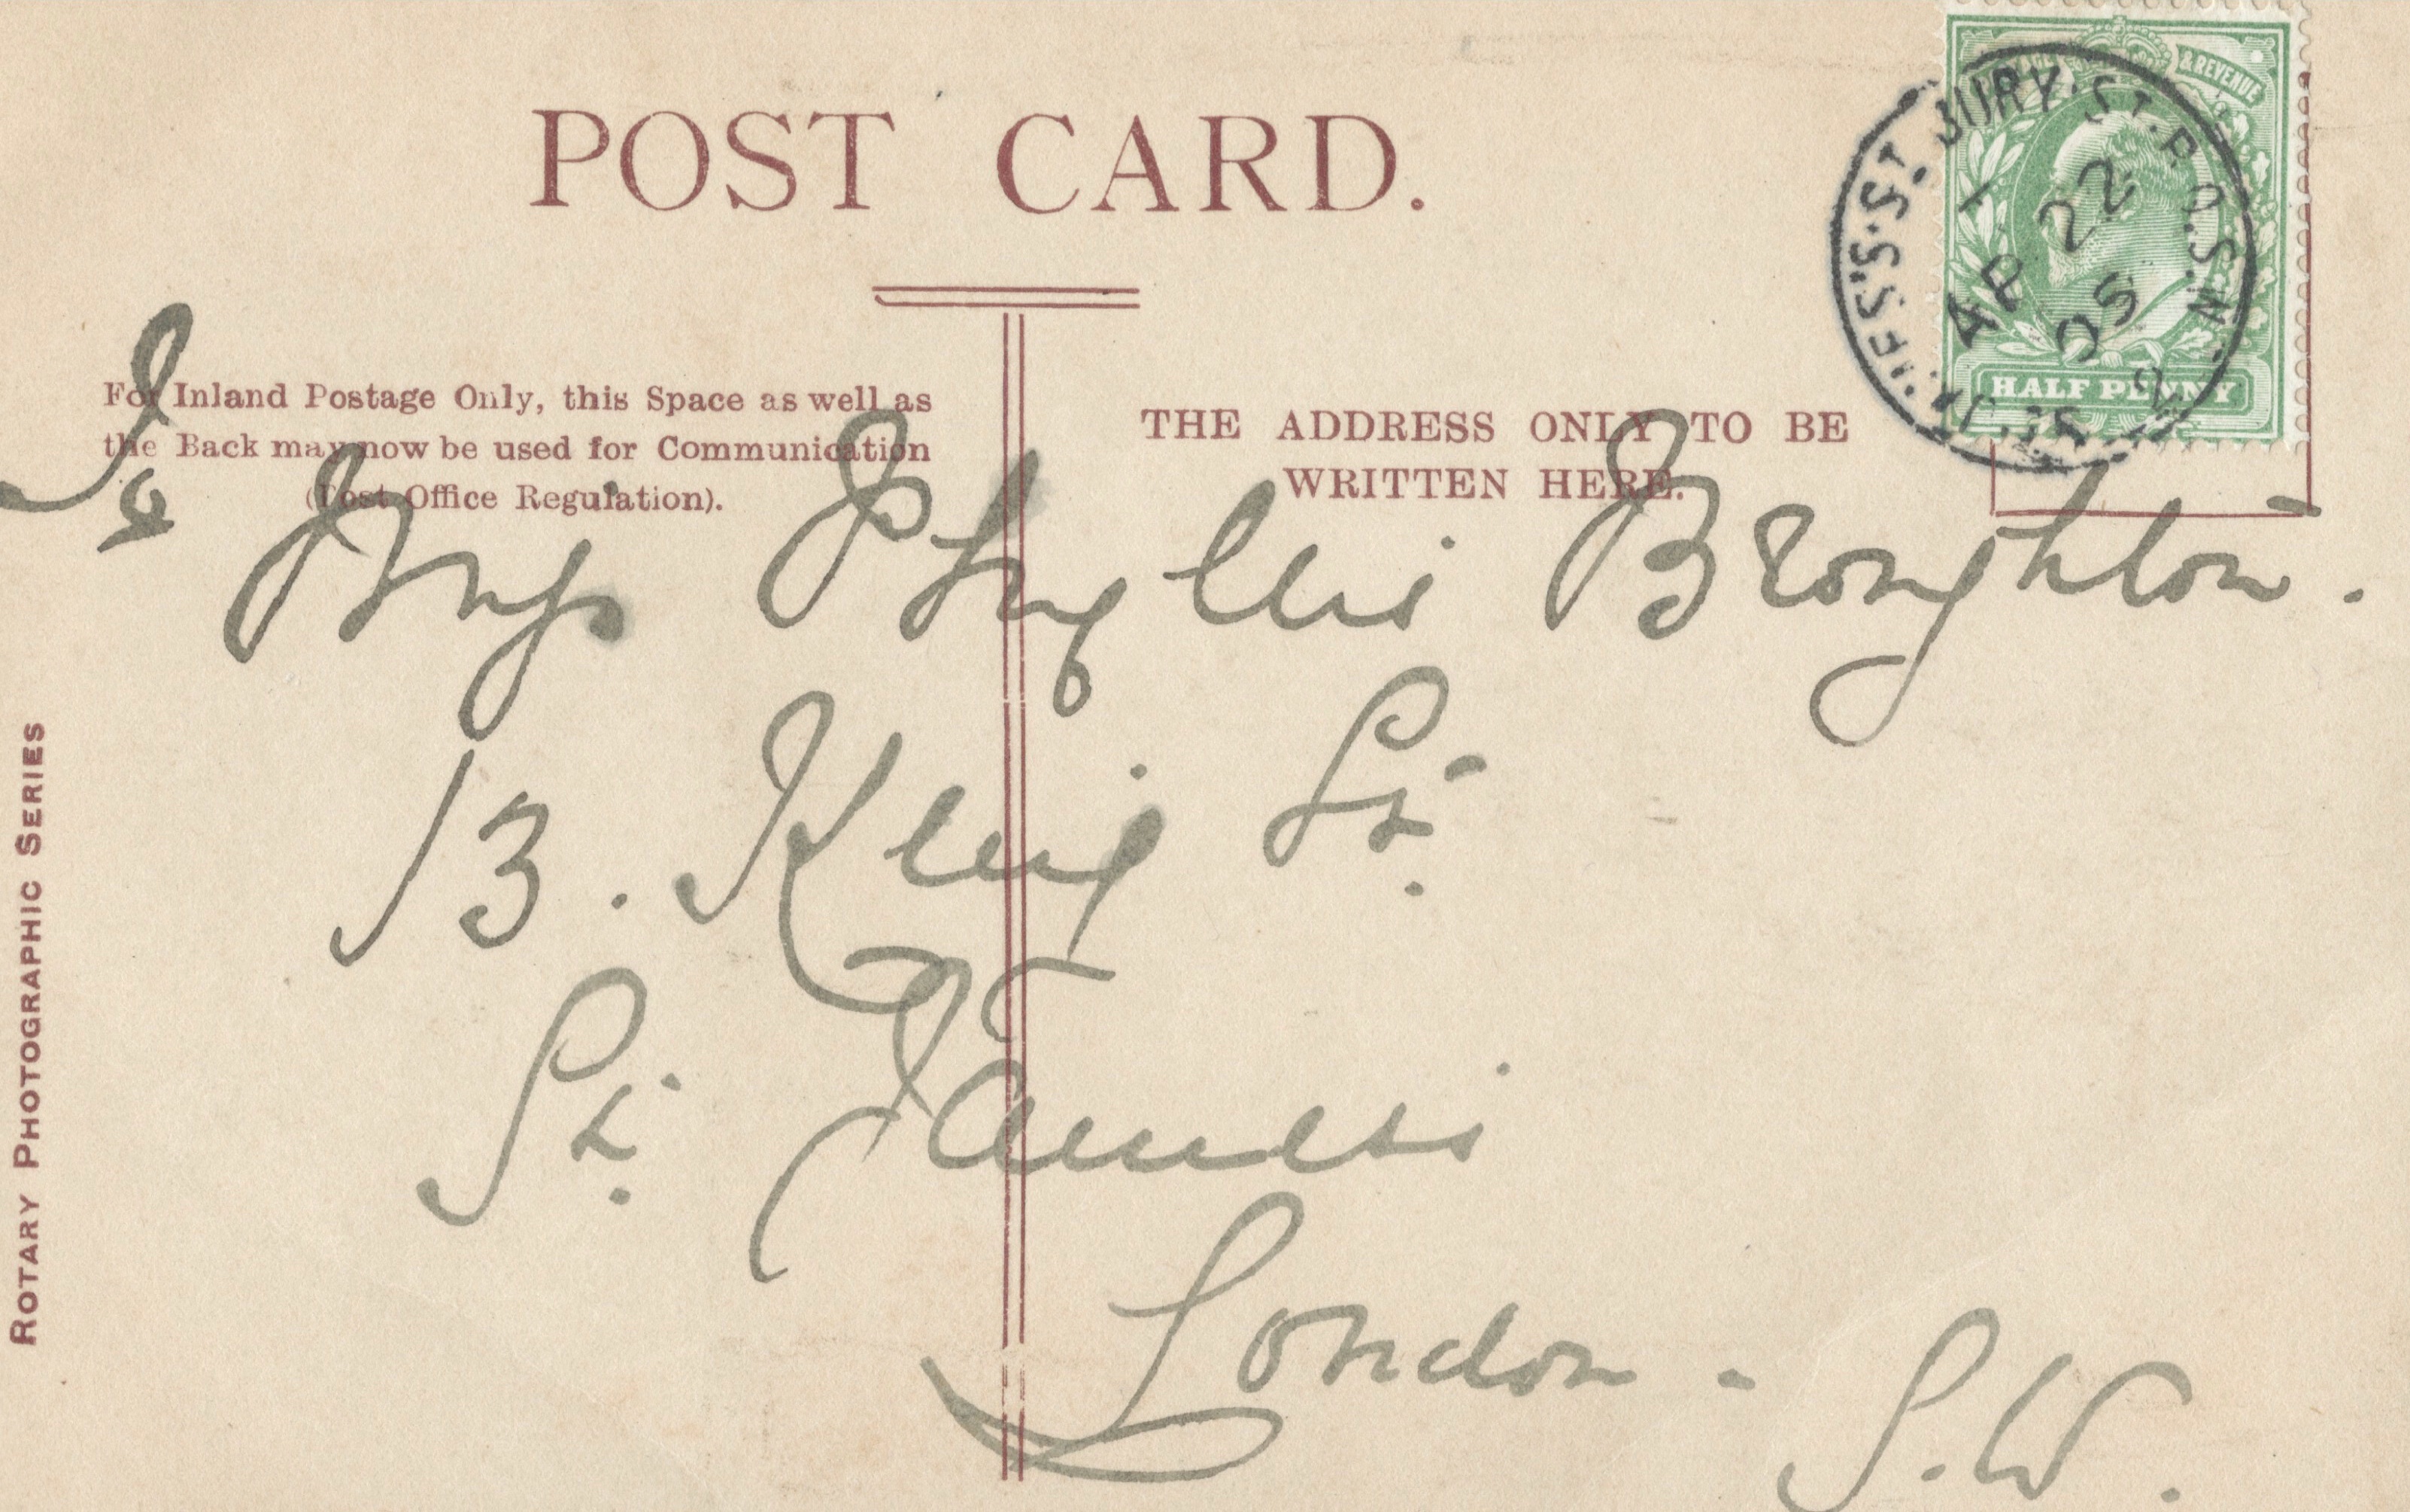 POST CARD.
& REVENUE
AP 22
05
HALF PENNY
For Inland Postage Only, this Space as well as
the Back may now be used for Communication
(Post Office Regulation).
THE ADDRESS ONLY TO BE
WRITTEN HERE.
To
Miss Phyllis Broughton.
13. King St.
St. James's
London - S.W.
ROTARY PHOTOGRAPHIC SERIES